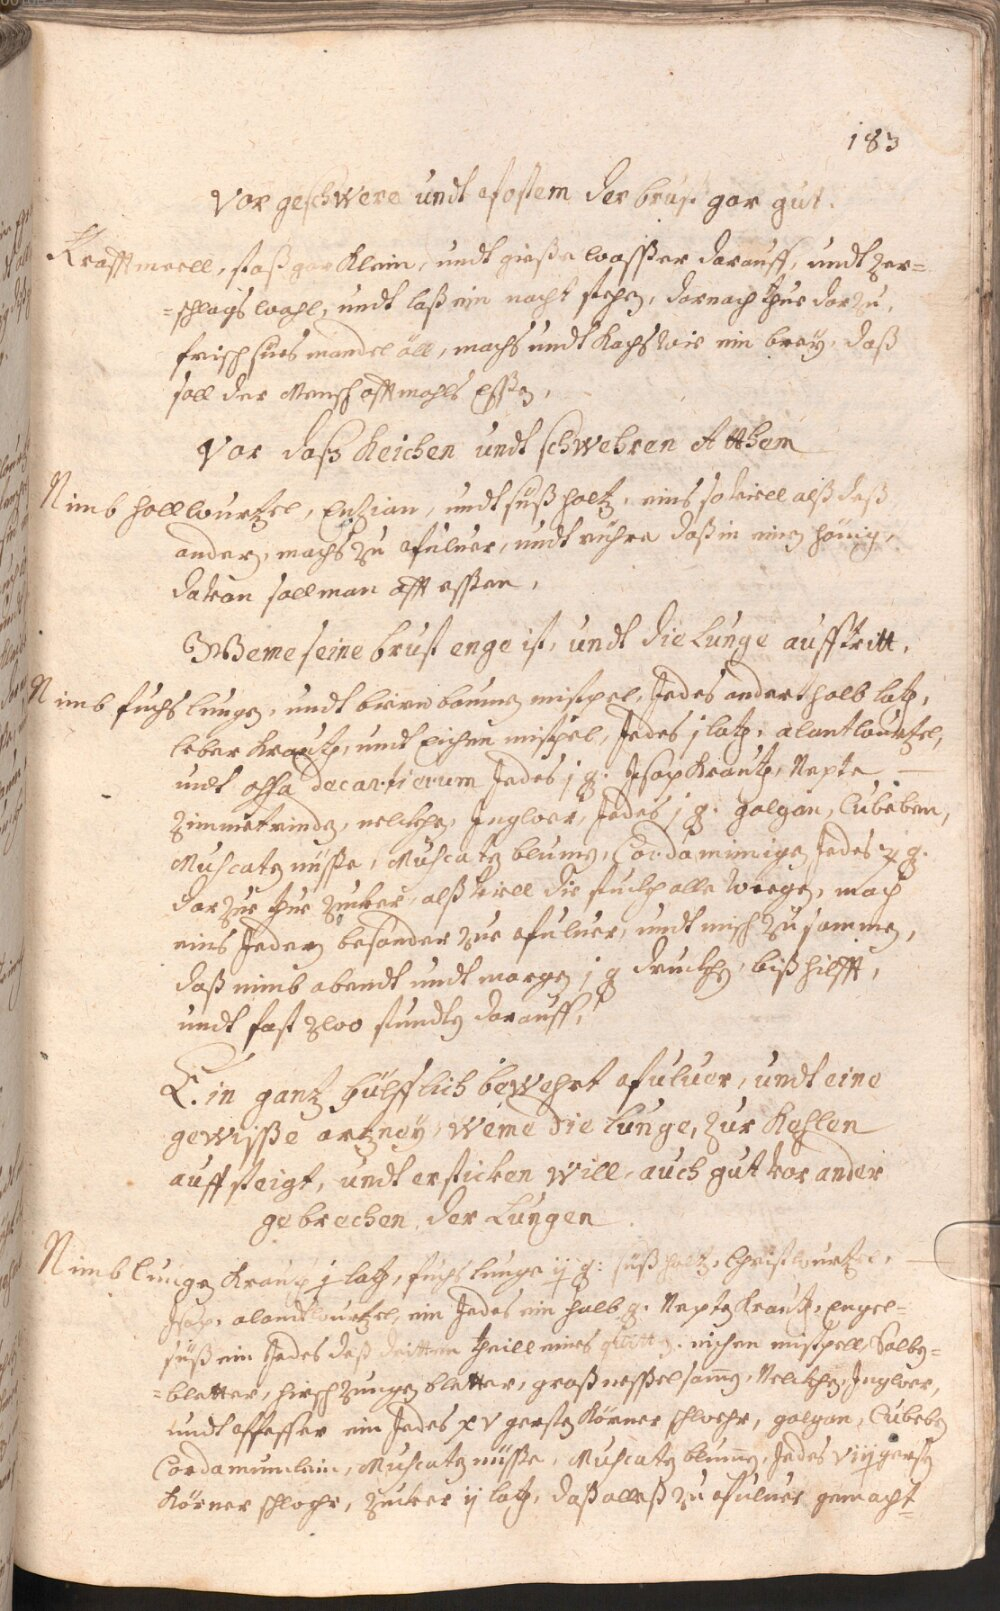 183
Vor geschwere undt apostem der brust gar gut.
Krafftmeell, stoß gar klein, undt gieße waßer darauff, undt zer=
=schlags wohl, undt laß ein nacht stehen, darnach thue darzu,
frisch sües mandel öll, machs undt kochs wie ein brey, daß
soll der Mensch offtmahls Eßen,
Vor daß Keichen undt schwehren Atthem
Nimb hollwurtzel, Entzian, undt süßholtz, eins so viell alß daß
ander, machs zu pfuluer, undt rühre daß in einen hönig,
davon soll man offt eßen,
Weme seine brust enge ist, undt die Lunge aufftritt,
Nimb fuchs lungen, undt birnbaumen mistpel, Jedes anderthalb loth,
leber Krauth, undt Eichen mistpel, Jedes j loth, alantwurtzel,
undt Jedes j q. Jsop Krauth, Nepte
Zimmetrinden, nelcken, Jngwer, Jedes j q. galgan, Cubeben,
Muscaten nüße, Muscaten blumen, Cordamimigen Jedes q.
darzue thue zucker, alß viell die stuckh alle wiegen, mach
eins Jeden besonder zue pfuluer, undt misch zusammen,
daß nimb abendt undt morgen j q drucken, biß hilfft,
undt fast zwo stundten darauff,
Ein gantz hülfflich bewehrt pfuluer, undt eine
gewiße artzney, weme die Lunge, zur Kehlen
auffsteigt, undt ersticken will, auch gut vor ander
gebrechen der Lungen
Nimb lungen Krauth j loth, fuchs lunge ij q: süßholtz, Christwurtzel,
Jsop, alandtwurtzel, ein Jedes ein halb q. Nepten Krauth, Engel=
süß ein Jedes daß dritten theill eines quittn. eichen mistpell, Salbey=
=bletter, hirschzungen bletter, groß neßelsamen, Nelcken, Jngwer,
undt pfeffer ein Jedes xv gersten Körner schwehr, galgan, Cubeben
Cordamumlein, Muscaten nüße, Muscaten blumen, Jedes viij gersten
Körner schwehr, zucker ij loth, daß alleß zu pfuluer gemacht=